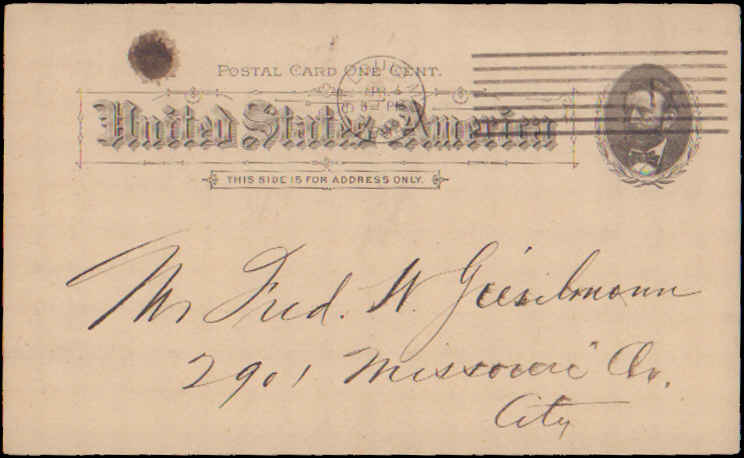 POSTAL CARD ONE CENT.
United States America
THIS SIDE IS FOR ADDRESS ONLY.
Mr Fred. W. Gieselmann
2901 Missouri Av.
City